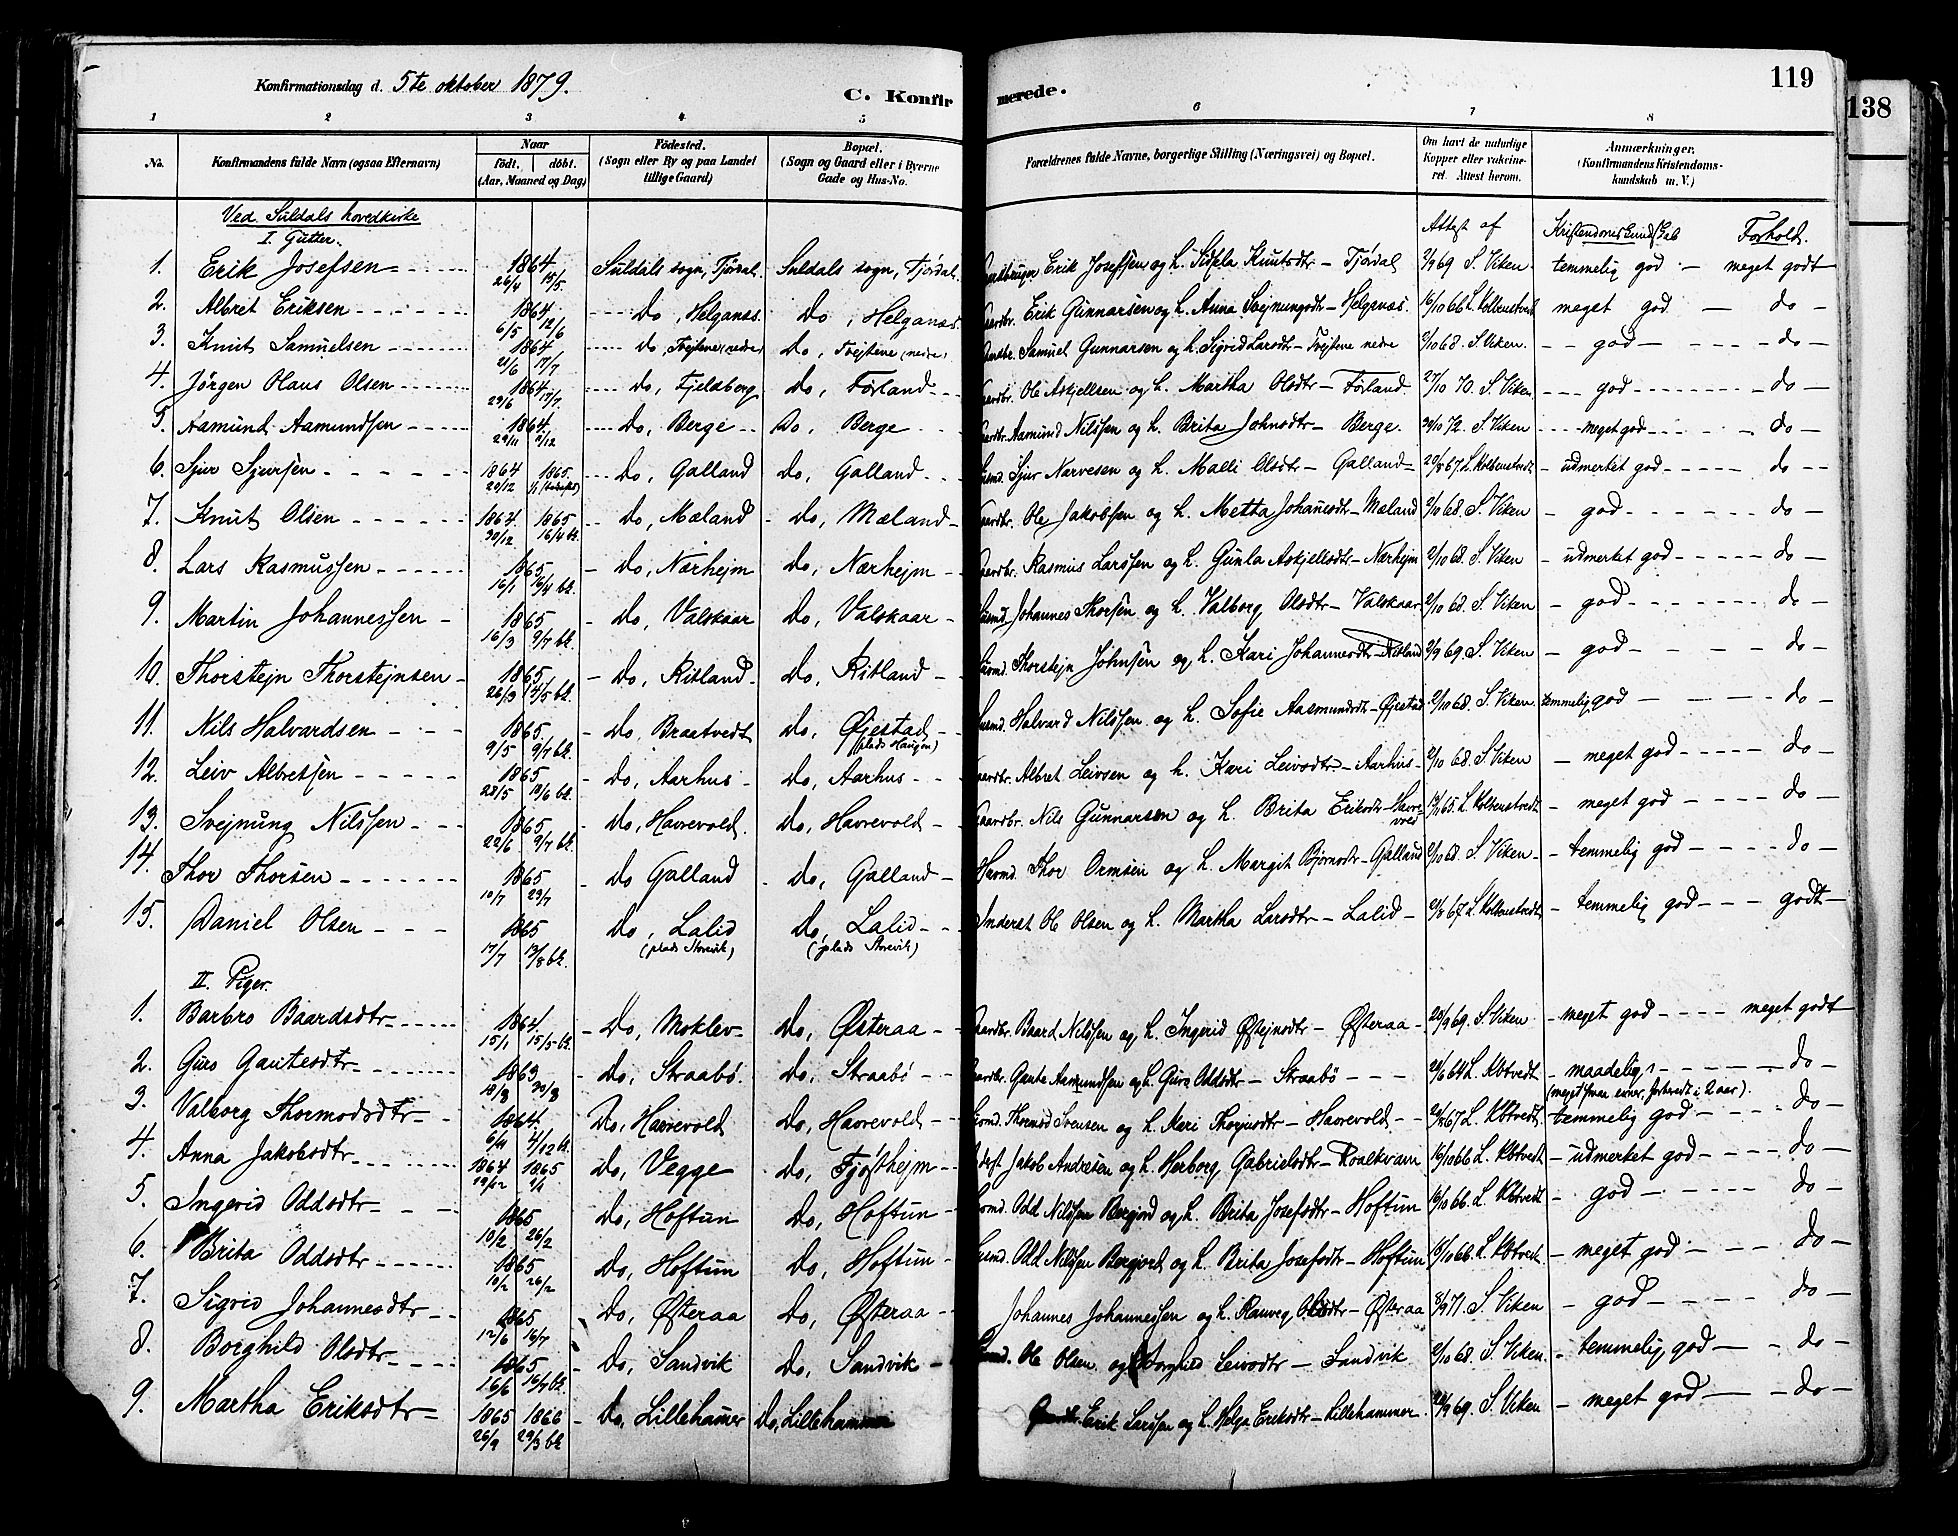 119
138
Konfirmationsdag d. 5te oktober 1879.
C. Konfirmerede.
1 2 3 4 5 6 7 8
No. Konfirmandens fulde Navn (ogsaa Efternavn) Naar født, døbt. (Aar, Maaned og Dag) Fødested. (Sogn eller By og paa Landet tillige Gaard) Bopæl. (Sogn og Gaard eller i Byerne Gade og Hus-No. Forældrenes fulde Navne, borgerlige Stilling (Næringsvei) og Bopæl. Om havt de naturlige Kopper eller vakcineret. Attest herom. Anmærkninger. (Konfirmandens Kristendomskundskab m. V.)
Ved Suldals hovedkirke
I. Gutter. Attest af Kristendomskundskab Forhold.
1. Erik Josefsen 1864 26/4 15/5. Suldals sogn, Tjørdal. Suldals sogn, Tjørdal. Erik Josefsen og h. Knutsdtr – Tjørdal 2/9 69 S. Viken temmelig god – meget godt
2. Albret Eriksen 1864 6/5 12/6 Do, Helganæs. Do, Helganæs. Gaardbr. Erik Gunnarsen og h. Anna Svejnungsdtr – Helganæs. 16/10 66 L. Kolbenstvedt meget god – do –
3. Knut Samuelsen 1864 21/6 17/7 do, Tvejtene (nedre) Do, Tvejtene (nedre) Gaardbr. Samuel Gunnarsen og h. Sigrid Larsdtr – Tvejtene nedre 2/10 68. S. Viken. – god – do –
4. Jørgen Olaus Olsen 1864 29/6 17/7. do, Fjeldborg do, Førland Gaardbr. Ole Askjellsen og h. Martha Olsdtr – Førland. 27/10 70. S. Viken god do –
5. Aamund Aamundsen 1864 29/11 2/12 do, Berge do, Berge Gaardbr. Aamund Nilssen og h. Brita Johnsdtr – Berge. 20/10 72. S. Viken meget god do –
6. Sjur Sjursen 1864 20/12 1865. 1/1 do, Galland do, Galland Husmd. Sjur Narvesen og h. Malli Olsdtr – Galland 20/8 67. L. Kolbenstvedt – udmerket god do
7. Knut Olsen 1864. 30/12 1865 16/4 bk. do, Mæland do, Mæland Gaardbr. Ole Jakobsen og h. Metta Johannesdtr – Mæland 2/10 68. S. Viken – god do –
8. Lars Rasmussen 1865 16/1 16/4 bk. do, Nærhejm do, Nærhejm Gaardbr. Rasmus Larssen og h. Gunla Askjellsdtr – Nærhejm 2/10 68. S. Viken – udmerket god do –
9. Martin Johannessen 1865 16/3 9/7 bk. do, Valskaar do, Valskaar Husmd. Johannes Thorsen og h. Valborg Olsdtr – Valskaar 2/10 68. S. Viken – god do –
10. Thorstejn Thorstejnsen 1865 26/3 14/5 bk. do, Ritland do, Ritland Husmd. Thorstejn Johnsen og h. Kari Johannesdtr – Ritland 2/9 69. S. Viken – god – do –
11. Nils Halvardsen 1865. 9/5 9/7 bk. do, Braatvedt do, Øjestad (plads Haugen) Husmd. Halvard Nilssen og h. Sofie Aasmundsdtr – Øjestad 2/10 68. S. Viken. temmelig god – do –
12. Leiv Albretsen 1865 28/5 18/6 bk. do, Aarhus do, Aarhus Gaardbr. Albret Leivsen og h. Kari Leivsdtr – Aarhus 2/10 68. S. Viken – meget god do –
13. Svejnung Nilssen 1865 22/6 9/7 bk. do, Havrevold. do, Havrevold Gaardbr. Nils Gunnarsen og h. Brita Eriksdtr – L. Kolbenstvedt – meget god do –
14. Thor Thorsen 1865 10/7 23/7 do Galland do, Galland Husmd. Thor Ormsen og h. Margit Bjørnsdtr – Galland 2/10 68. S. Viken – temmelig god do –
15. Daniel Olsen 1865 17/7 13/8 bk. do, Lalid do, Lalid Inderst Ole Olsen og h. Martha Larsdtr – Lalid 20/8 67 L. Kolbenstvedt – temmelig god godt –
(plads Storvik) (plads Storvik)
II. Piger.
1. Barbro Baardsdtr 1864. 15/1 15/5 bk. do, Moklev do, Østeraa Gaardbr. Baard Nilssen og h. Ingerid Østejnsdtr – Østeraa 20/9 69. S. Viken – meget god meget godt
2. Guro Gautesdtr 1863 18/8 30/8 do, Straabø. do, Straabø Gaardbr. Gaute Aamundsen og h. Guro Oddsdtr – Straabø 20/6 64 L. Kbtvedt – maadelig do –
3. Valborg Thormodsdtr 1864. 4/12 bk. Do, Havrevold Do, Havrevold Husmd. Thormod Svensen og h. Kari – Havrevold – 20/8 67 L. Kbtvedt. temmelig god – do –
4. Anna Jakobsdtr 1864 19/12 1865 do, Vegge do, Fjøsthejm Jakob Andresen og h. Herborg Gabrielsdtr – Roalkvam 16/10 66 L. Kbtvedt – udmerket god do –
5. Ingerid Oddsdtr 1865 10/2 26/2 do, Hoftun do, Hoftun Husmd. Odd Nilssen Bergjord og h. Brita Josefsdtr – Hoftun 16/10 66. L. Kbtvedt. – god – do –
6. Brita Oddsdtr 1865 10/2 26/2 do, Hoftun do, Hoftun Husmd. Odd Nilssen Bergjord og h. Brita Josefsdtr – Hoftun 16/10 66. L. Kbtvedt. – meget god do –
7. Sigrid Johannesdtr 1865 12/6 16/7 do, Østeraa do, Østeraa Johannes Johannessen og h. Ranveg Olsdtr – Østeraa 8/9 71. S. Viken – god – do –
8. Borghild Olsdtr 1865 16/6 16/7 bk. do, Sandvik do, Sandvik Husmd. Ole Olsen og h. Borghild Leivsdtr – Sandvik 2/10 68. S. Viken. – temmelig god – do –
9. Martha Eriksdtr 1865 26/9 1866 29/3 bk do, Lillehamer Do, Lillehammer Gaardbr. Erik Larssen og h. Helga Eriksdtr – Lillehammer 20/9 69. S. Viken – meget god – do –